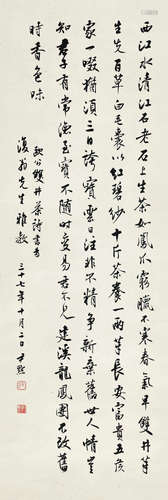 西江水清江石老石上生茶如鳳爪窮臘不寒春氣早雙井芽
生先百草白毛囊以紅碧紗十斤茶養一兩芽長安富貴五侯
家一啜猶須三日誇寶雲日注非不精爭新棄舊世人情豈
知君子有常德至寶不隨時變易君不見建溪龍鳳團不改舊
時香色味
歐公雙井茶詩書奉
先生雅教
三十七年十月二日尹默